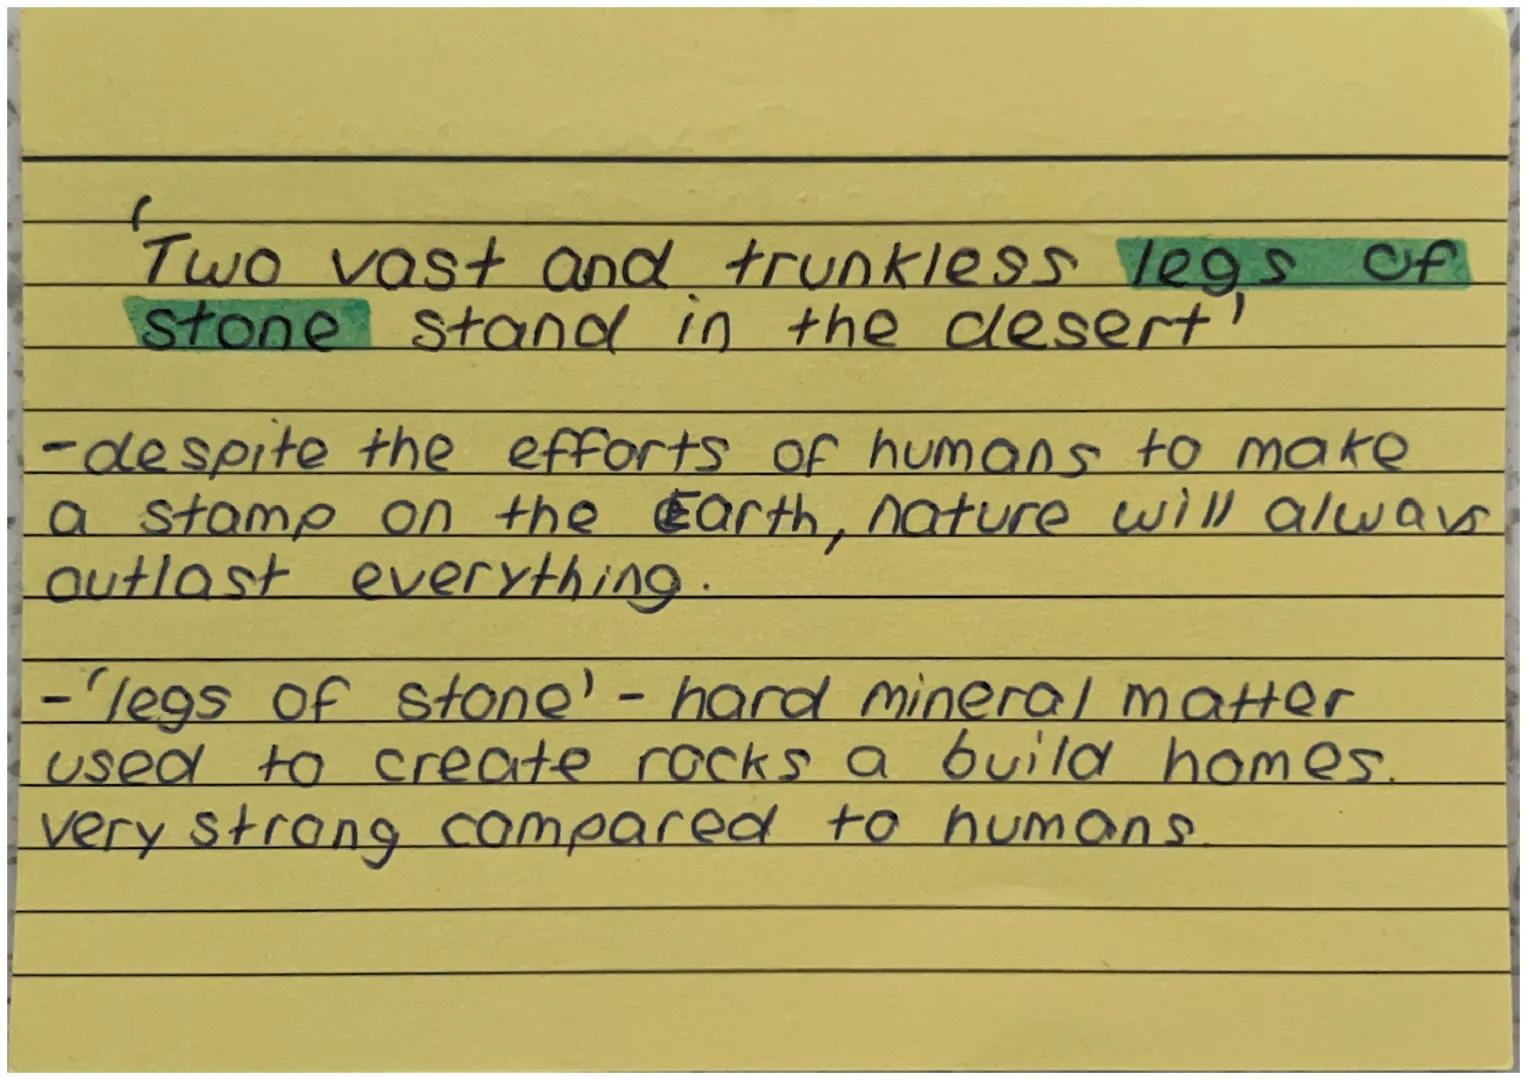 'Two vast and trunkless legs of
stone stand in the desert'
-despite the efforts of humans to make
a stamp on the Earth, nature will always
outlast everything.
-'legs of stone' - hard mineral matter
used to create rocks a build homes.
very strong compared to humans.